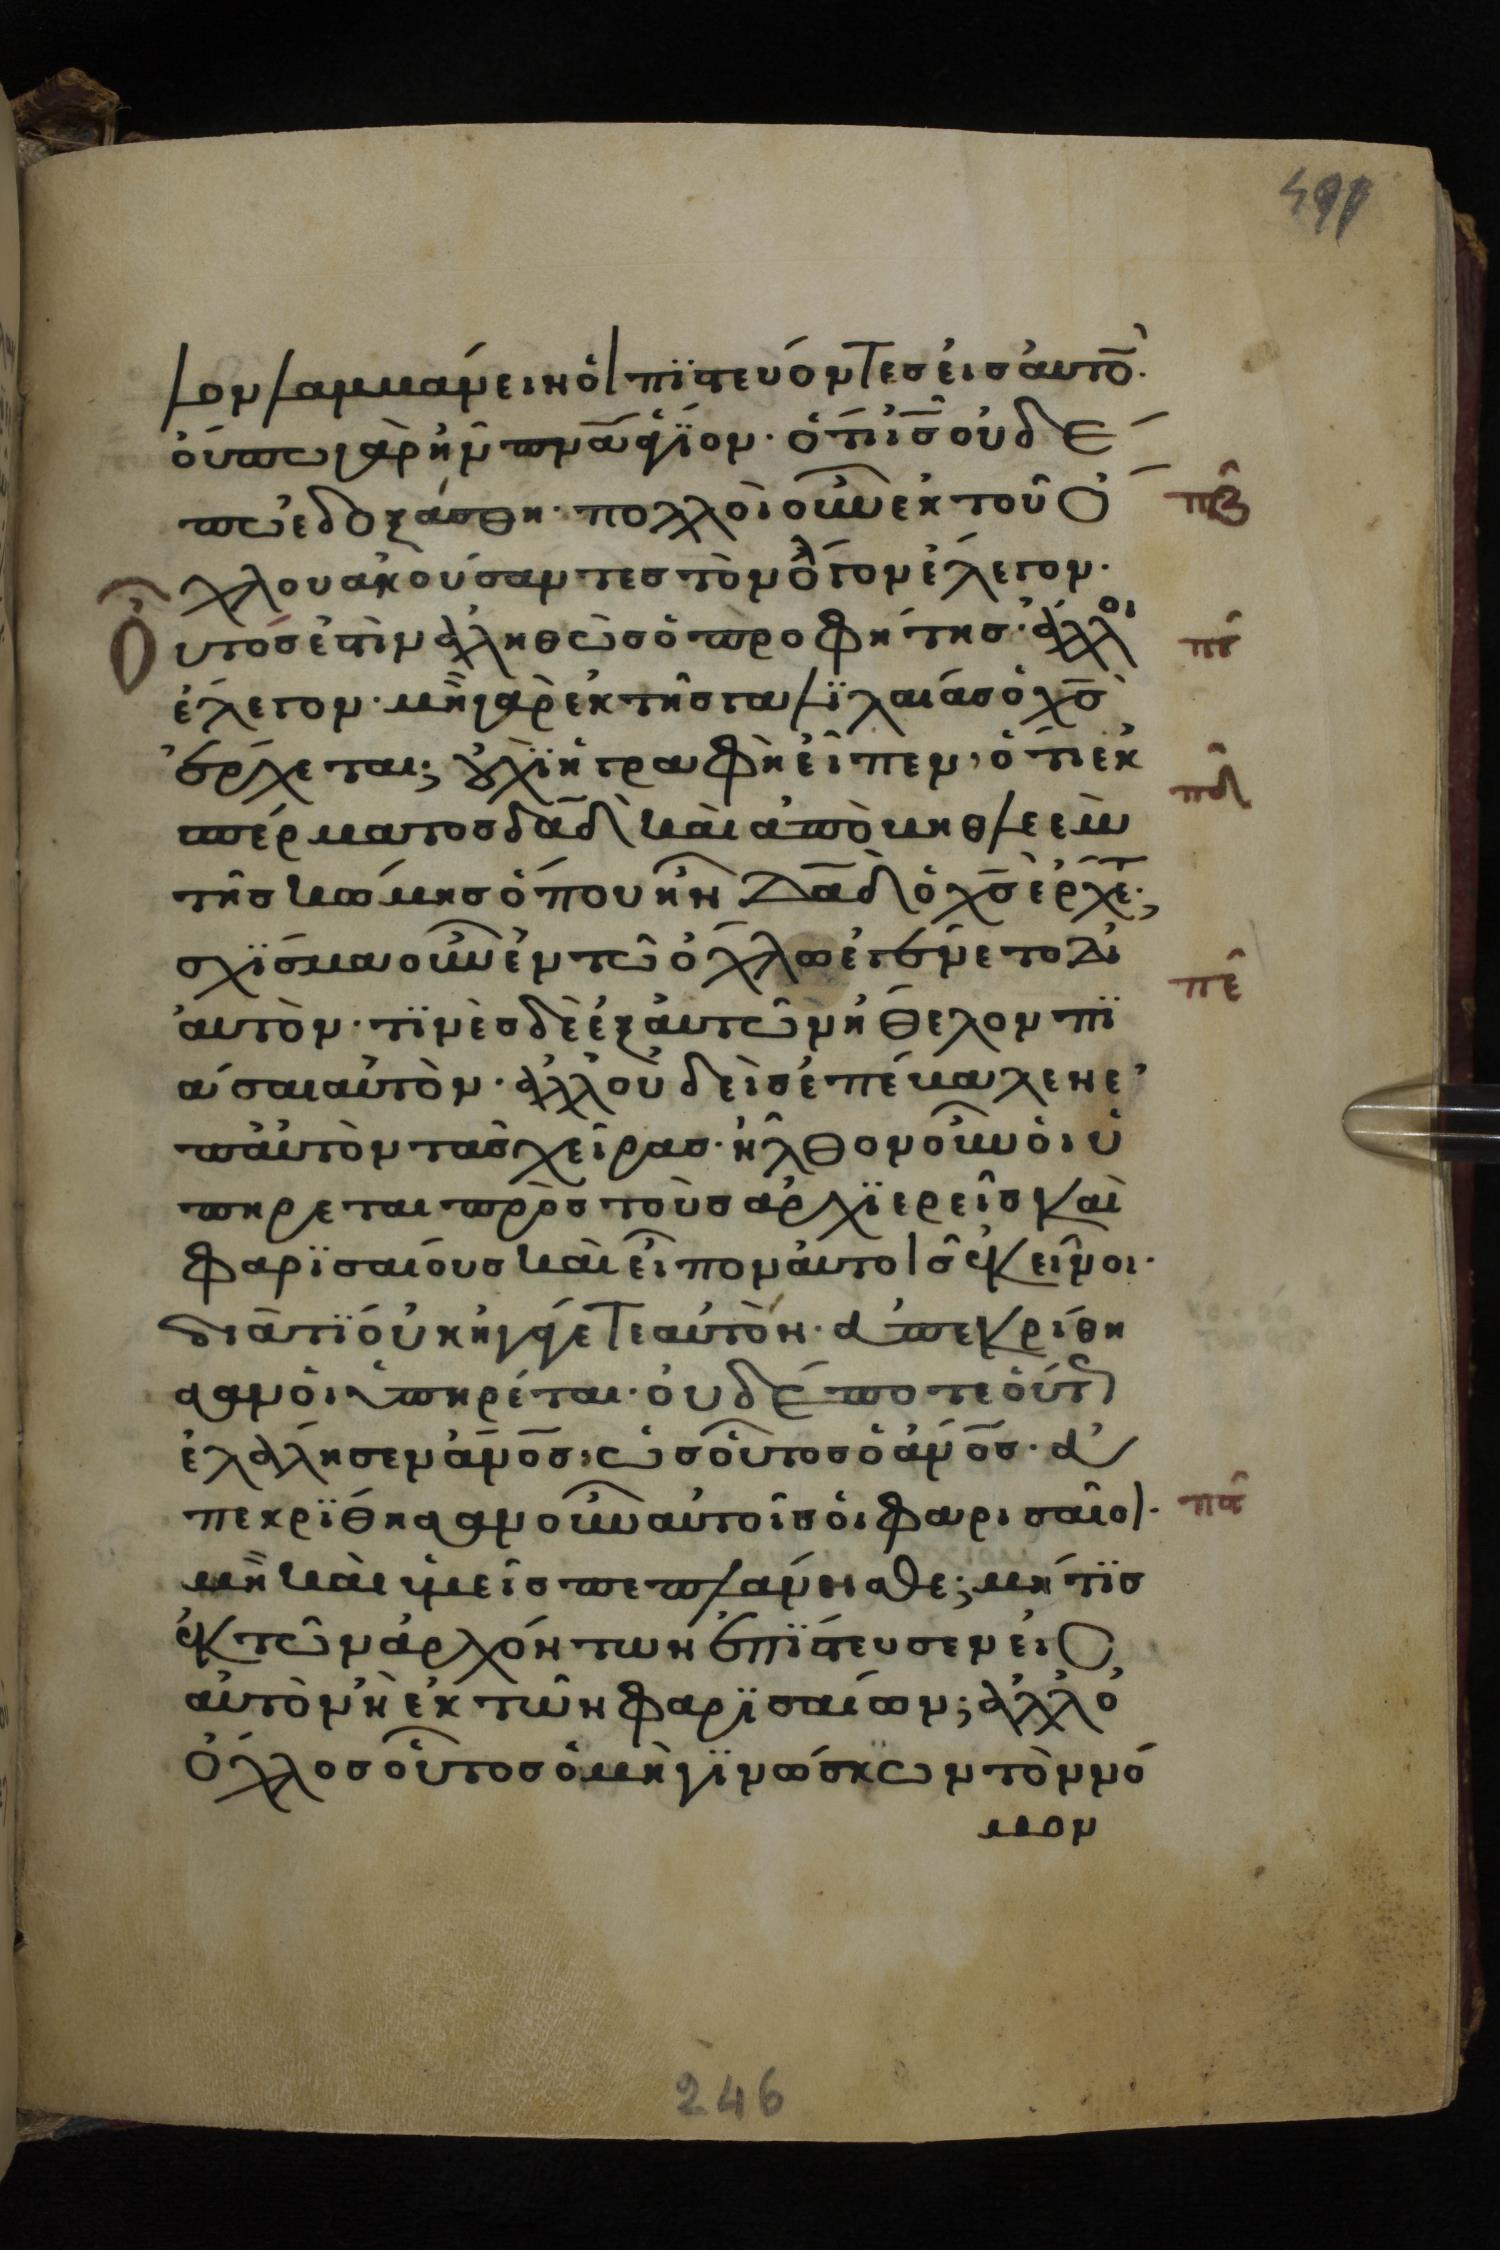 491
λον λαμβάνειν ὁι πϊστεύοντες ἐις ἀυτὸ̅.
ὀύπω γὰρ ἦν π̅ν̅α̅ ἅγϊον. ὅτι ι̅ς̅ ὀυδέ
πω ἐδοξάσθη. πολλοὶ οὖν ἐκ τοῦ ὄ
πβ
χλου ἀκούσαντες τὸν λόγον ἔλεγον.
Οὗτός ἐστὶν ἀληθῶς ὁ προφήτης. ἄλλοι
πγ
ἔλεγον. μὴ γὰρ ἐκ τῆς γαλϊλαίας ὁ χ̅ς̅
ἔρχεται; οὐχϊ ἡ γραφὴ εἶπεν, ὅτι ἐκ
πδ
σπέρματος δα̅δ̅ καὶ ἀπὸ βηθλεὲμ
τῆς κώμης ὅπου ἦν Δα̅δ̅ ὁ χ̅ς̅ ἔρχετ;
σχϊσμα οὖν ἐν τῶ ὄχλω ἐγένετο δι
πε
ἀυτὸν. τϊνὲς δὲ ἐξ ἀυτῶν ἤθελον πϊ
άσαι αὐτὸν. ἀλλ' οὐδεὶς ἐπέβαλεν ἐ
π' ἀυτὸν τὰς χεῖρας. ἦλθον οὖν ὁι ὑ
πηρεται πρὸς τοὺς ἀρχϊερεῖς καὶ
φαρϊσαιόυς καὶ εἶπον ἀυτοῖς ἐκεῖνοι.
διὰ τϊ ὀυκ ἠγάγετε αὐτὸν. ἀπεκρίθη
σαν ὁι ὑπηρέται. ὀυδέποτε ὅυτως
ἐλάλησεν α̅ν̅ο̅ς̅, ὡς ὅυτος ὁ α̅ν̅ο̅ς̅. ἀ
πεκρϊθησαν οὖν αὐτοῖς ὁι φαρισαῖοι.
πϛ
μὴ καὶ ὑμεῖς πεπλάνησθε; μή τϊς
ἐκ τῶν ἀρχόντων ἐπϊστευσεν εἰς
αὐτὸν ἢ ἐκ τῶν φαρϊσαίων; ἀλλ' ὁ
ὄχλος ὅυτος ὁ μὴ γϊνώσκων τὸν νό
μον
246